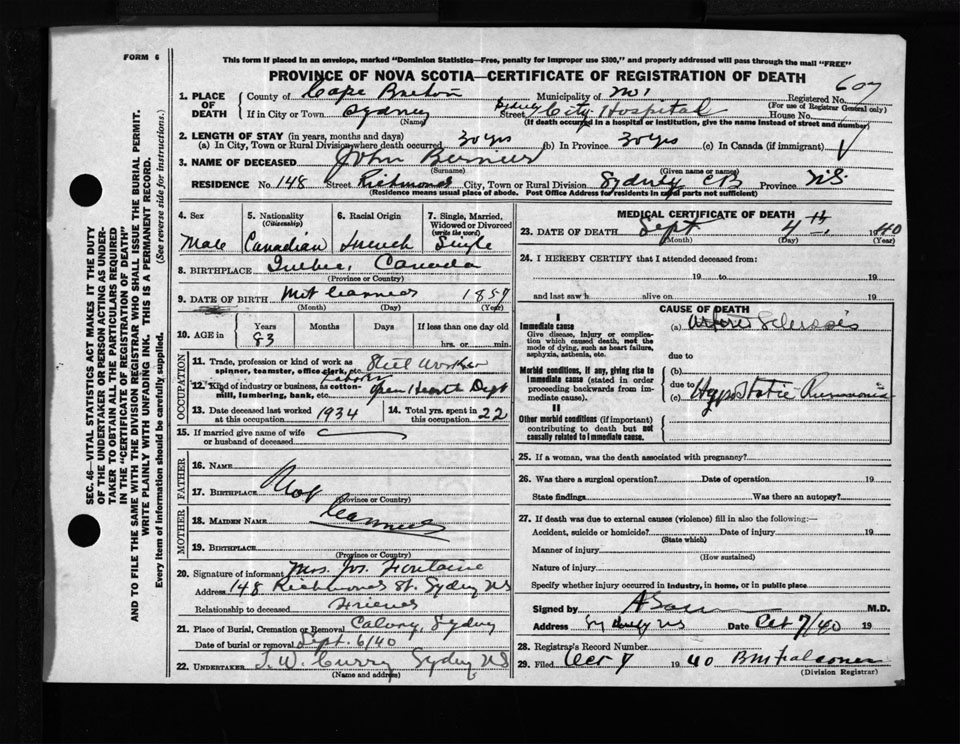 FORM 6
This form if placed in an envelope, marked "Dominion Statistics—Free, penalty for improper use $300," and properly addressed will pass through the mail "FREE"
PROVINCE OF NOVA SCOTIA—CERTIFICATE OF REGISTRATION OF DEATH
607
1. PLACE OF DEATH County of Cape Breton Municipality of Registered No.
(For use of Registrar General only)
If in City or Town Sydney Street Sydney City Hospital House No.
(Name) (If death occurred in a hospital or institution, give the name instead of street and number)
2. LENGTH OF STAY (in years, months and days)
(a) In City, Town or Rural Division where death occurred 30 yrs (b) In Province 30 yrs (c) In Canada (if immigrant)
3. NAME OF DECEASED John
(Surname) (Given name or names)
RESIDENCE No. 148 Street Richmond City, Town or Rural Division Sydney CB Province N.S.
(Residence means usual place of abode. Post Office Address for residents in rural parts not sufficient)
4. Sex 5. Nationality (Citizenship) 6. Racial Origin 7. Single, Married, Widowed or Divorced (write the word)
Male Canadian French Single
8. BIRTHPLACE Quebec, Canada
(Province or Country)
9. DATE OF BIRTH Not 1857
(Month) (Day) (Year)
10. AGE in Years Months Days If less than one day old
83 hrs. or min.
OCCUPATION
11. Trade, profession or kind of work as spinner, teamster, office clerk, etc. Steel Worker
Laborer
12. Kind of industry or business, as cotton-mill, lumbering, bank, etc. Open Hearth Dept
13. Date deceased last worked at this occupation 1934 14. Total yrs. spent in this occupation 22
15. If married give name of wife or husband of deceased
FATHER
16. NAME
17. BIRTHPLACE Not
(Province or Country)
MOTHER
18. MAIDEN NAME
19. BIRTHPLACE
(Province or Country)
20. Signature of informant Mrs. Jos. Fontaine
Address 148 Richmond St. Sydney NS
Relationship to deceased Friend
21. Place of Burial, Cremation or Removal Calvary, Sydney
Date of burial or removal Sept. 6/40
22. UNDERTAKER T. W. Curry Sydney NS
(Name and address)
MEDICAL CERTIFICATE OF DEATH
23. DATE OF DEATH Sept 4th 1940
(Month) (Day) (Year)
24. I HEREBY CERTIFY that I attended deceased from:
19 to 19
and last saw h alive on 19
CAUSE OF DEATH
I
Immediate cause
Give disease, injury or complication which caused death, not the mode of dying, such as heart failure, asphyxia, asthenia, etc.
(a) Arterio Sclerosis
due to
Morbid conditions, if any, giving rise to immediate cause (stated in order proceeding backwards from immediate cause).
(b)
due to
(c) Hypostatic Pneumonia
II
Other morbid conditions (if important) contributing to death but not causally related to immediate cause.
25. If a woman, was the death associated with pregnancy?
26. Was there a surgical operation? Date of operation 19
State findings Was there an autopsy?
27. If death was due to external causes (violence) fill in also the following:—
Accident, suicide or homicide? Date of injury 19
(State which)
Manner of injury
(How sustained)
Nature of injury
Specify whether injury occurred in industry, in home, or in public place
Signed by M.D.
Address Sydney NS Date Oct 7/40 19
28. Registrar's Record Number
29. Filed Oct 7 1940
(Division Registrar)
SEC. 46—VITAL STATISTICS ACT MAKES IT THE DUTY
OF THE UNDERTAKER OR PERSON ACTING AS UNDER-
TAKER TO OBTAIN ALL THE PARTICULARS REQUIRED
IN THE "CERTIFICATE OF REGISTRATION OF DEATH"
AND TO FILE THE SAME WITH THE DIVISION REGISTRAR WHO SHALL ISSUE THE BURIAL PERMIT.
WRITE PLAINLY WITH UNFADING INK. THIS IS A PERMANENT RECORD.
Every item of information should be carefully supplied. (See reverse side for instructions.)